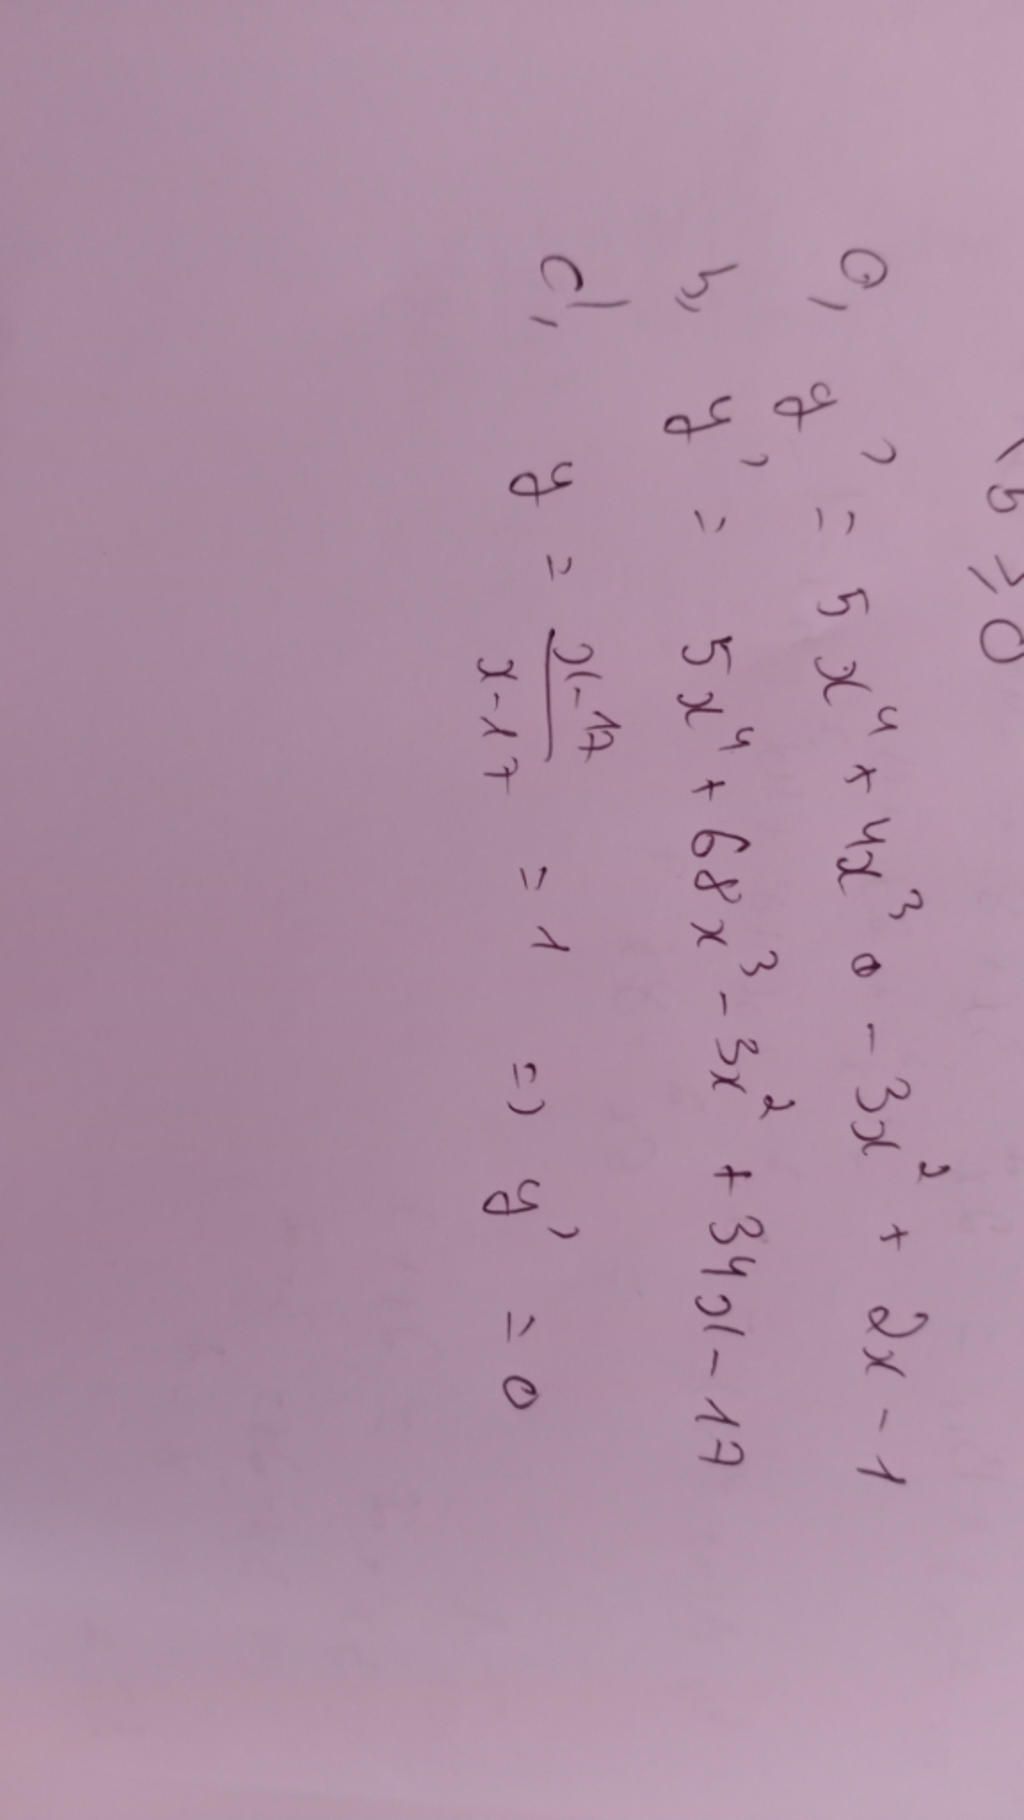 b ≥ 0
a, y' = 5x⁴ + 4x³ - 3x² + 2x - 1
b, y' = 5x⁴ + 68x³ - 3x² + 34x - 17
d, y = x-17/x-17 = 1 => y' = 0